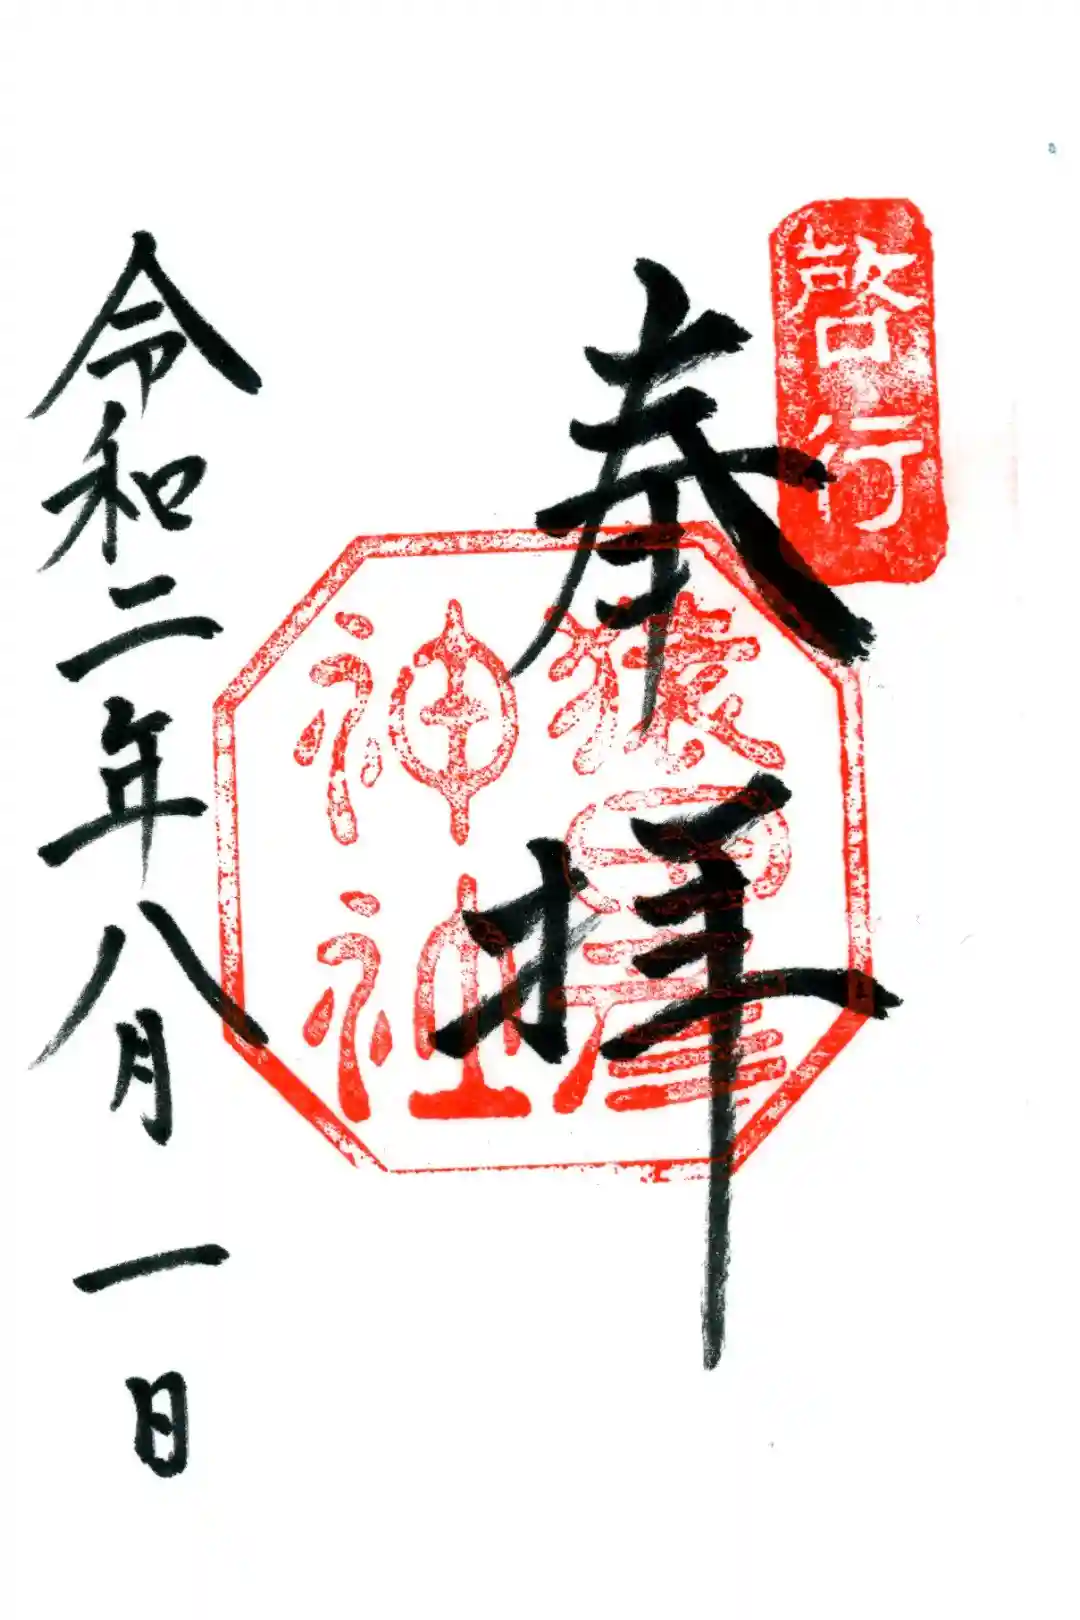 啓行
奉拝
猿田彦
神社
令和二年八月一日